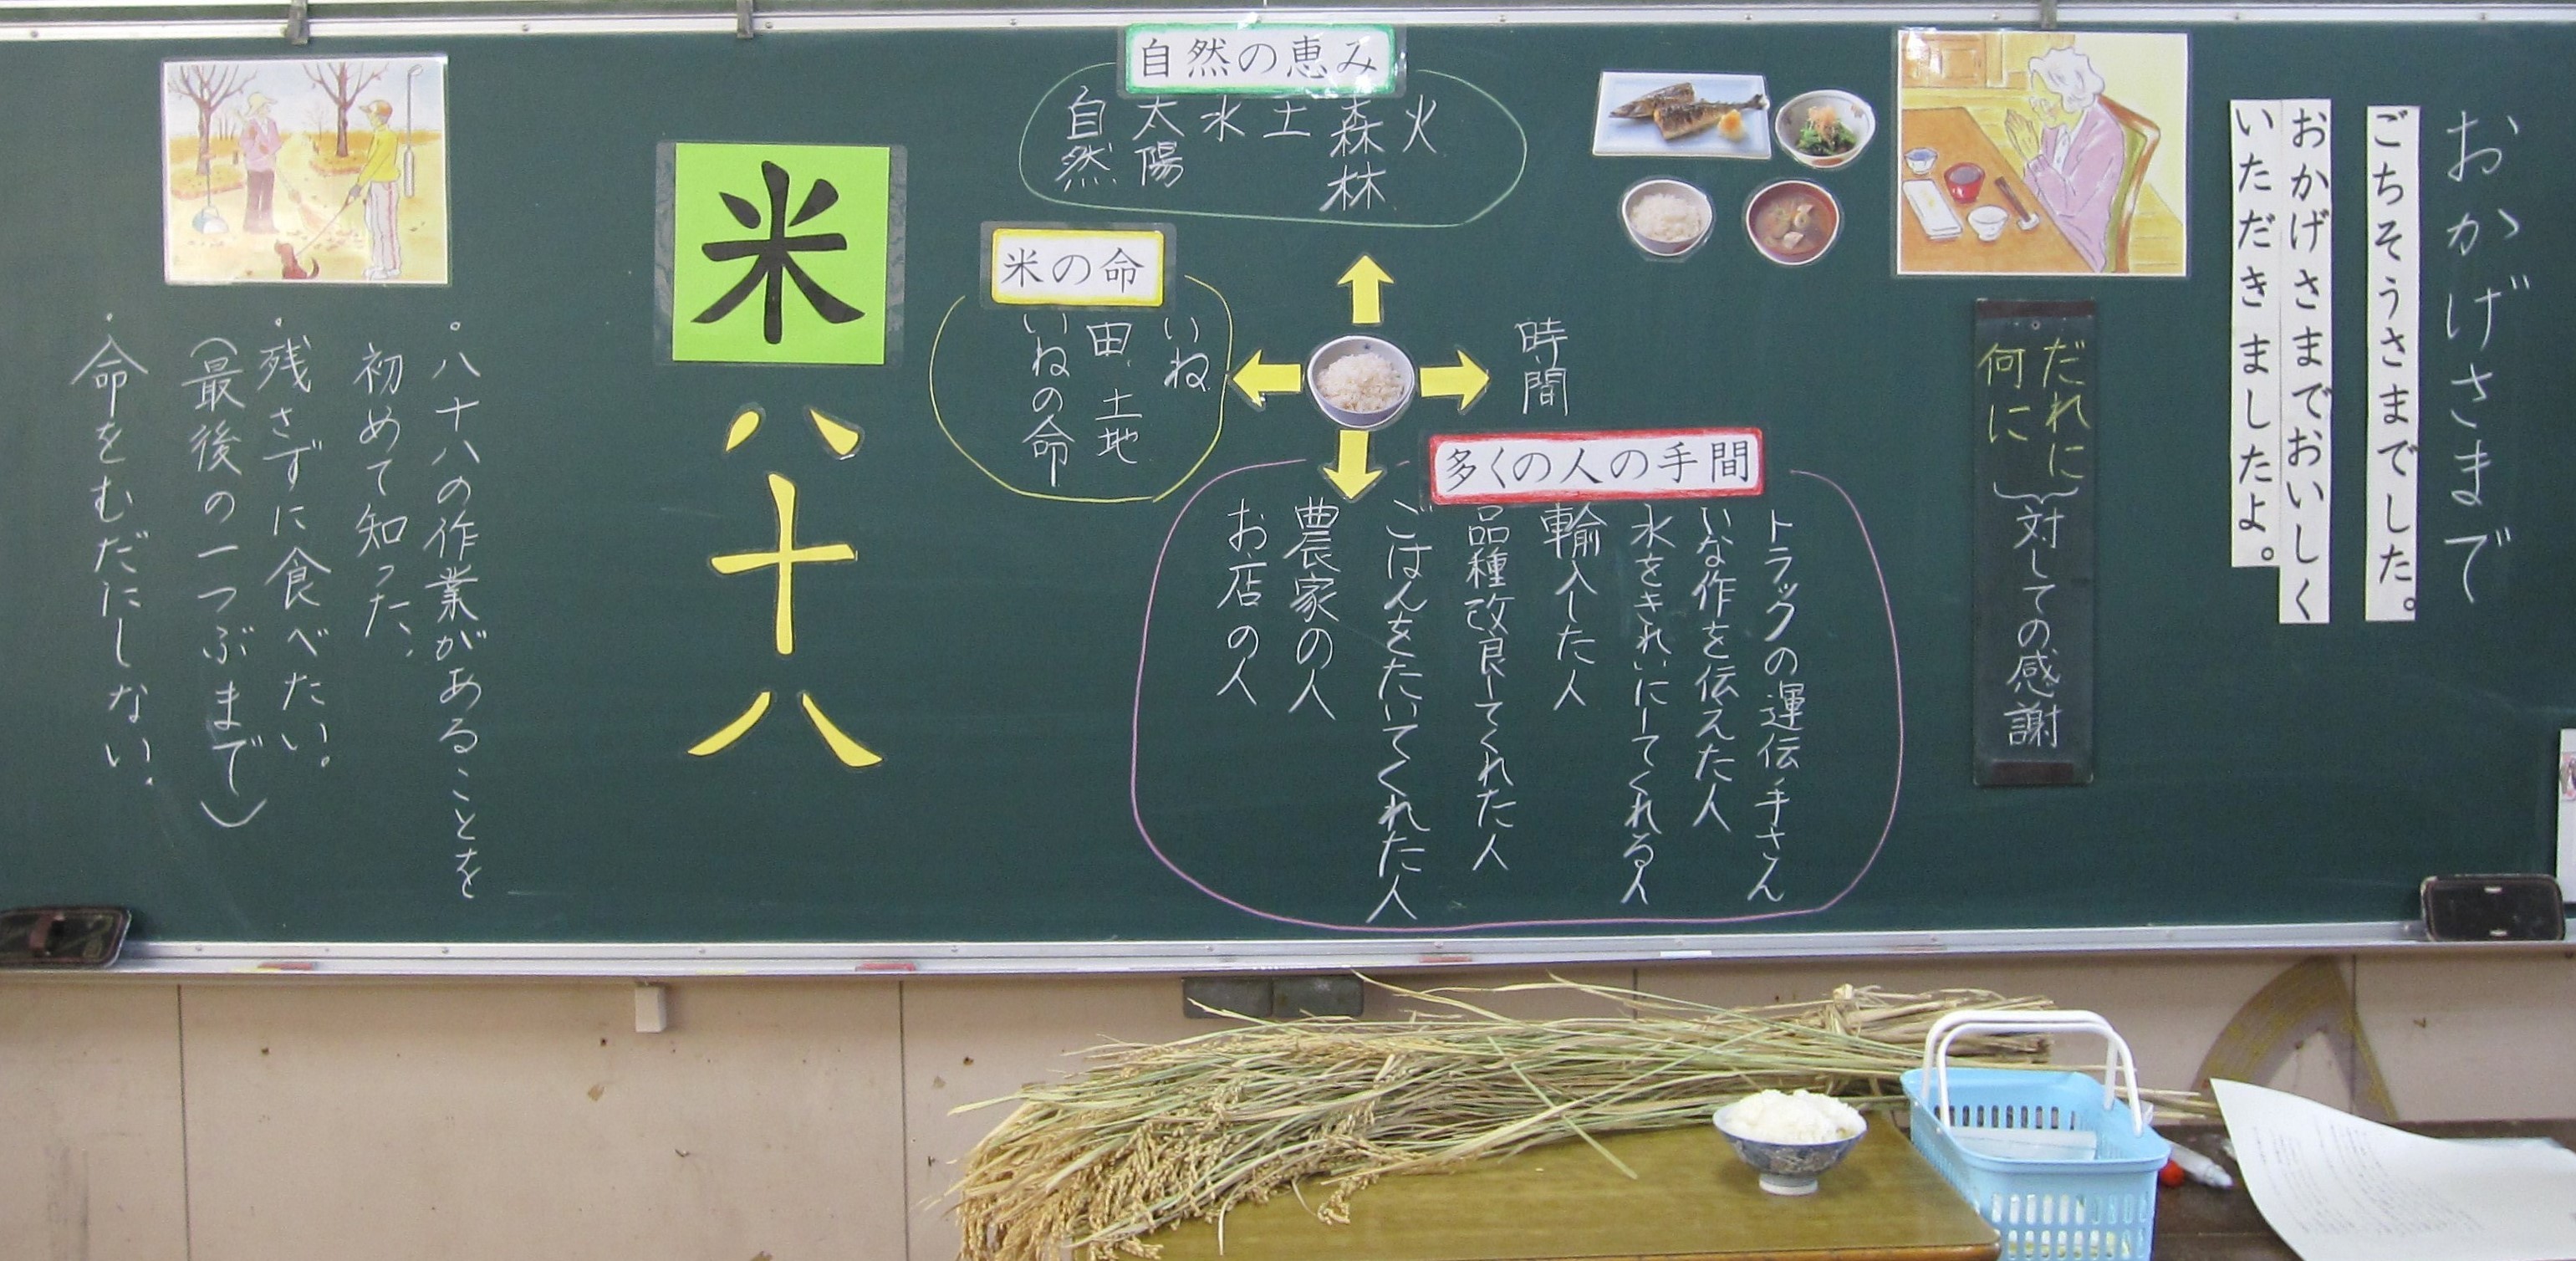 おかげさまで
ごちそうさまでした。
おかげさまでおいしく
いただきましたよ。
だれに
何に
対しての感謝
自然の恵み
火
森林
土
水
太陽
自然
時間
多くの人の手間
トラックの運伝手さん
いな作を伝えた人
水をきれいにしてくれる人
輸入した人
品種改良してくれた人
ごはんをたいてくれた人
農家の人
お店の人
米の命
いね
田、土地
いねの命
米
八十八
・八十八の作業があることを
初めて知った。
・残さずに食べたい。
(最後の一つぶまで)
・命をむだにしない。